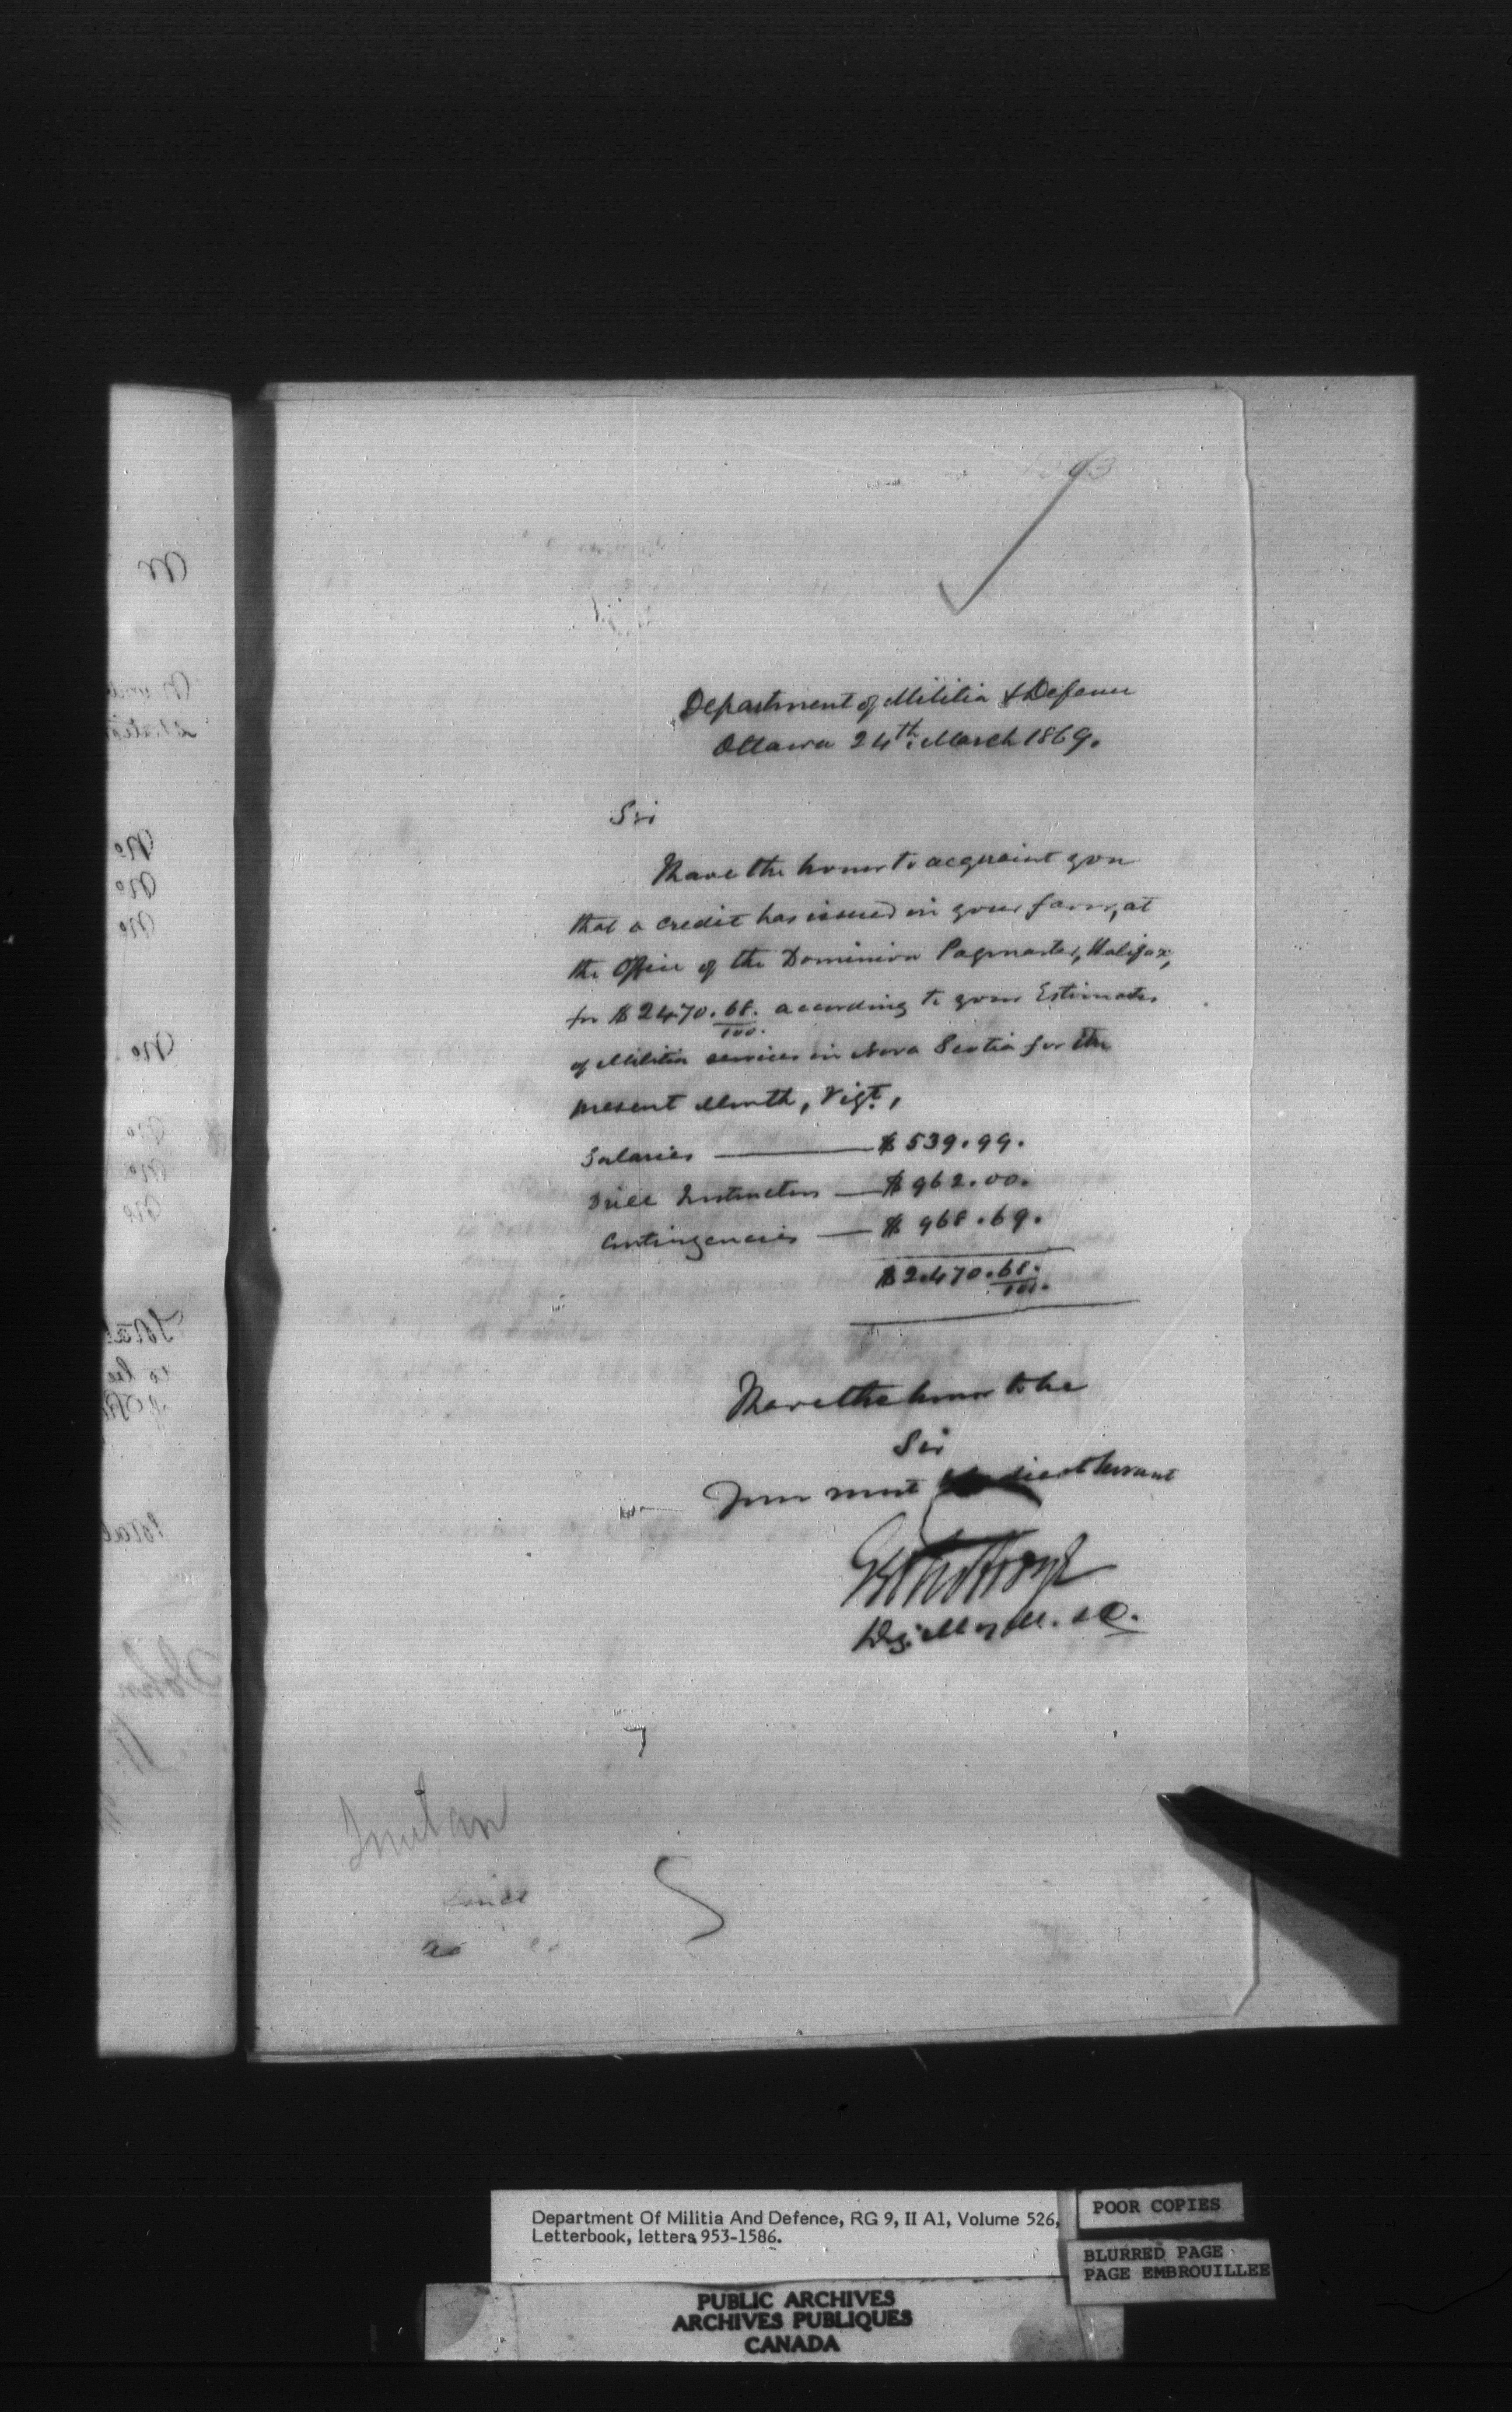 Department of Militia & Defence
Ottawa 24th. March 1869.
Sir
I have the honor to acquaint you
that a credit has issued in your favor, at
the Office of the Dominion Paymaster, Halifax,
for $2470.68/100. according to your Estimates
of Militia services in Nova Scotia for the
present Month, Vizt.,
Salaries — $539.99.
Drill Instructors — $962.00.
Contingencies — $968.69.
$2.470.68/100.
I have the honor to be
Sir
Your most obedient Servant
D. M. of M. & D.
Department Of Militia And Defence, RG 9, II A1, Volume 526,
Letterbook, letters 953-1586.
POOR COPIES
BLURRED PAGE
PAGE EMBROUILLEE
PUBLIC ARCHIVES
ARCHIVES PUBLIQUES
CANADA